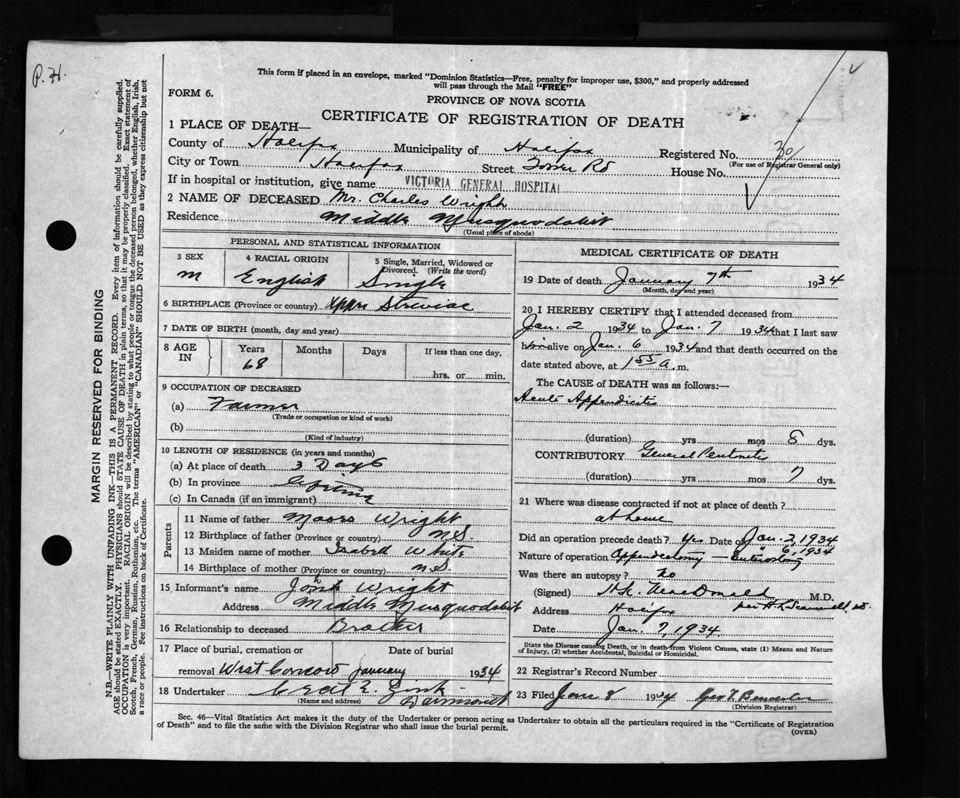 P. H.
This form if placed in an envelope, marked "Dominion Statistics—Free, penalty for improper use, $300," and properly addressed
will pass through the Mail "FREE"
FORM 6.
PROVINCE OF NOVA SCOTIA
CERTIFICATE OF REGISTRATION OF DEATH
1 PLACE OF DEATH—
County of Halifax Municipality of Halifax Registered No. 30
(For use of Registrar General only)
City or Town Halifax Street Tower Rd House No.
If in hospital or institution, give name VICTORIA GENERAL HOSPITAL
2 NAME OF DECEASED Mr. Charles Wright
Residence Middle Musquodobit
(Usual place of abode)
PERSONAL AND STATISTICAL INFORMATION
3 SEX
M
4 RACIAL ORIGIN
English
5 Single, Married, Widowed or
Divorced. (Write the word)
Single
6 BIRTHPLACE (Province or country) Upper
7 DATE OF BIRTH (month, day and year)
8 AGE
IN
Years
68
Months
Days
If less than one day,
hrs. or min.
9 OCCUPATION OF DECEASED
(a) Farmer
(Trade or occupation or kind of work)
(b)
(Kind of industry)
10 LENGTH OF RESIDENCE (in years and months)
(a) At place of death 3 Days
(b) In province
(c) In Canada (if an immigrant)
Parents
11 Name of father Wright
12 Birthplace of father (Province or country) N.S.
13 Maiden name of mother Isabell White
14 Birthplace of mother (Province or country) N.S.
15 Informant's name Wright
Address Middle Musquodobit
16 Relationship to deceased Brother
17 Place of burial, cremation or Date of burial
removal West January 1934
18 Undertaker Zink
(Name and address) Dartmouth
MEDICAL CERTIFICATE OF DEATH
19 Date of death January 7th 1934
(Month, day and year)
20 I HEREBY CERTIFY that I attended deceased from
Jan. 2 1934 to Jan. 7 1934 that I last saw
him alive on Jan. 6 1934 and that death occurred on the
date stated above, at a.m.
The CAUSE of DEATH was as follows:
Acute Appendicitis
(duration) yrs mos 8 dys.
CONTRIBUTORY General
(duration) yrs mos 7 dys.
21 Where was disease contracted if not at place of death?
at home
Did an operation precede death? Yes Date of Jan. 2, 1934
" 6, 1934
Nature of operation Appendectomy —
Was there an autopsy? No
(Signed) H.K. MacDonald M.D.
Address Halifax per
Date Jan. 7, 1934
State the Disease causing Death, or in death from Violent Causes, state (1) Means and Nature
of Injury, (2) whether Accidental, Suicidal or Homicidal.
22 Registrar's Record Number
23 Filed Jan. 8 1934
(Division Registrar)
Sec. 46—Vital Statistics Act makes it the duty of the Undertaker or person acting as Undertaker to obtain all the particulars required in the "Certificate of Registration
of Death" and to file the same with the Division Registrar who shall issue the burial permit.
(OVER)
MARGIN RESERVED FOR BINDING
N.B.—WRITE PLAINLY WITH UNFADING INK—THIS IS A PERMANENT RECORD. Every item of information should be carefully supplied.
AGE should be stated EXACTLY. PHYSICIANS should STATE CAUSE OF DEATH in plain terms, so that it may be properly classified. Exact statement of
OCCUPATION is very important. RACIAL ORIGIN will be described by stating to what people or tongue the deceased person belonged, whether English, Irish,
Scotch, French, German, Russian, Ruthenian, etc. The terms "AMERICAN" or "CANADIAN" SHOULD NOT BE USED as they express citizenship but not
a race or people. See instructions on back of Certificate.